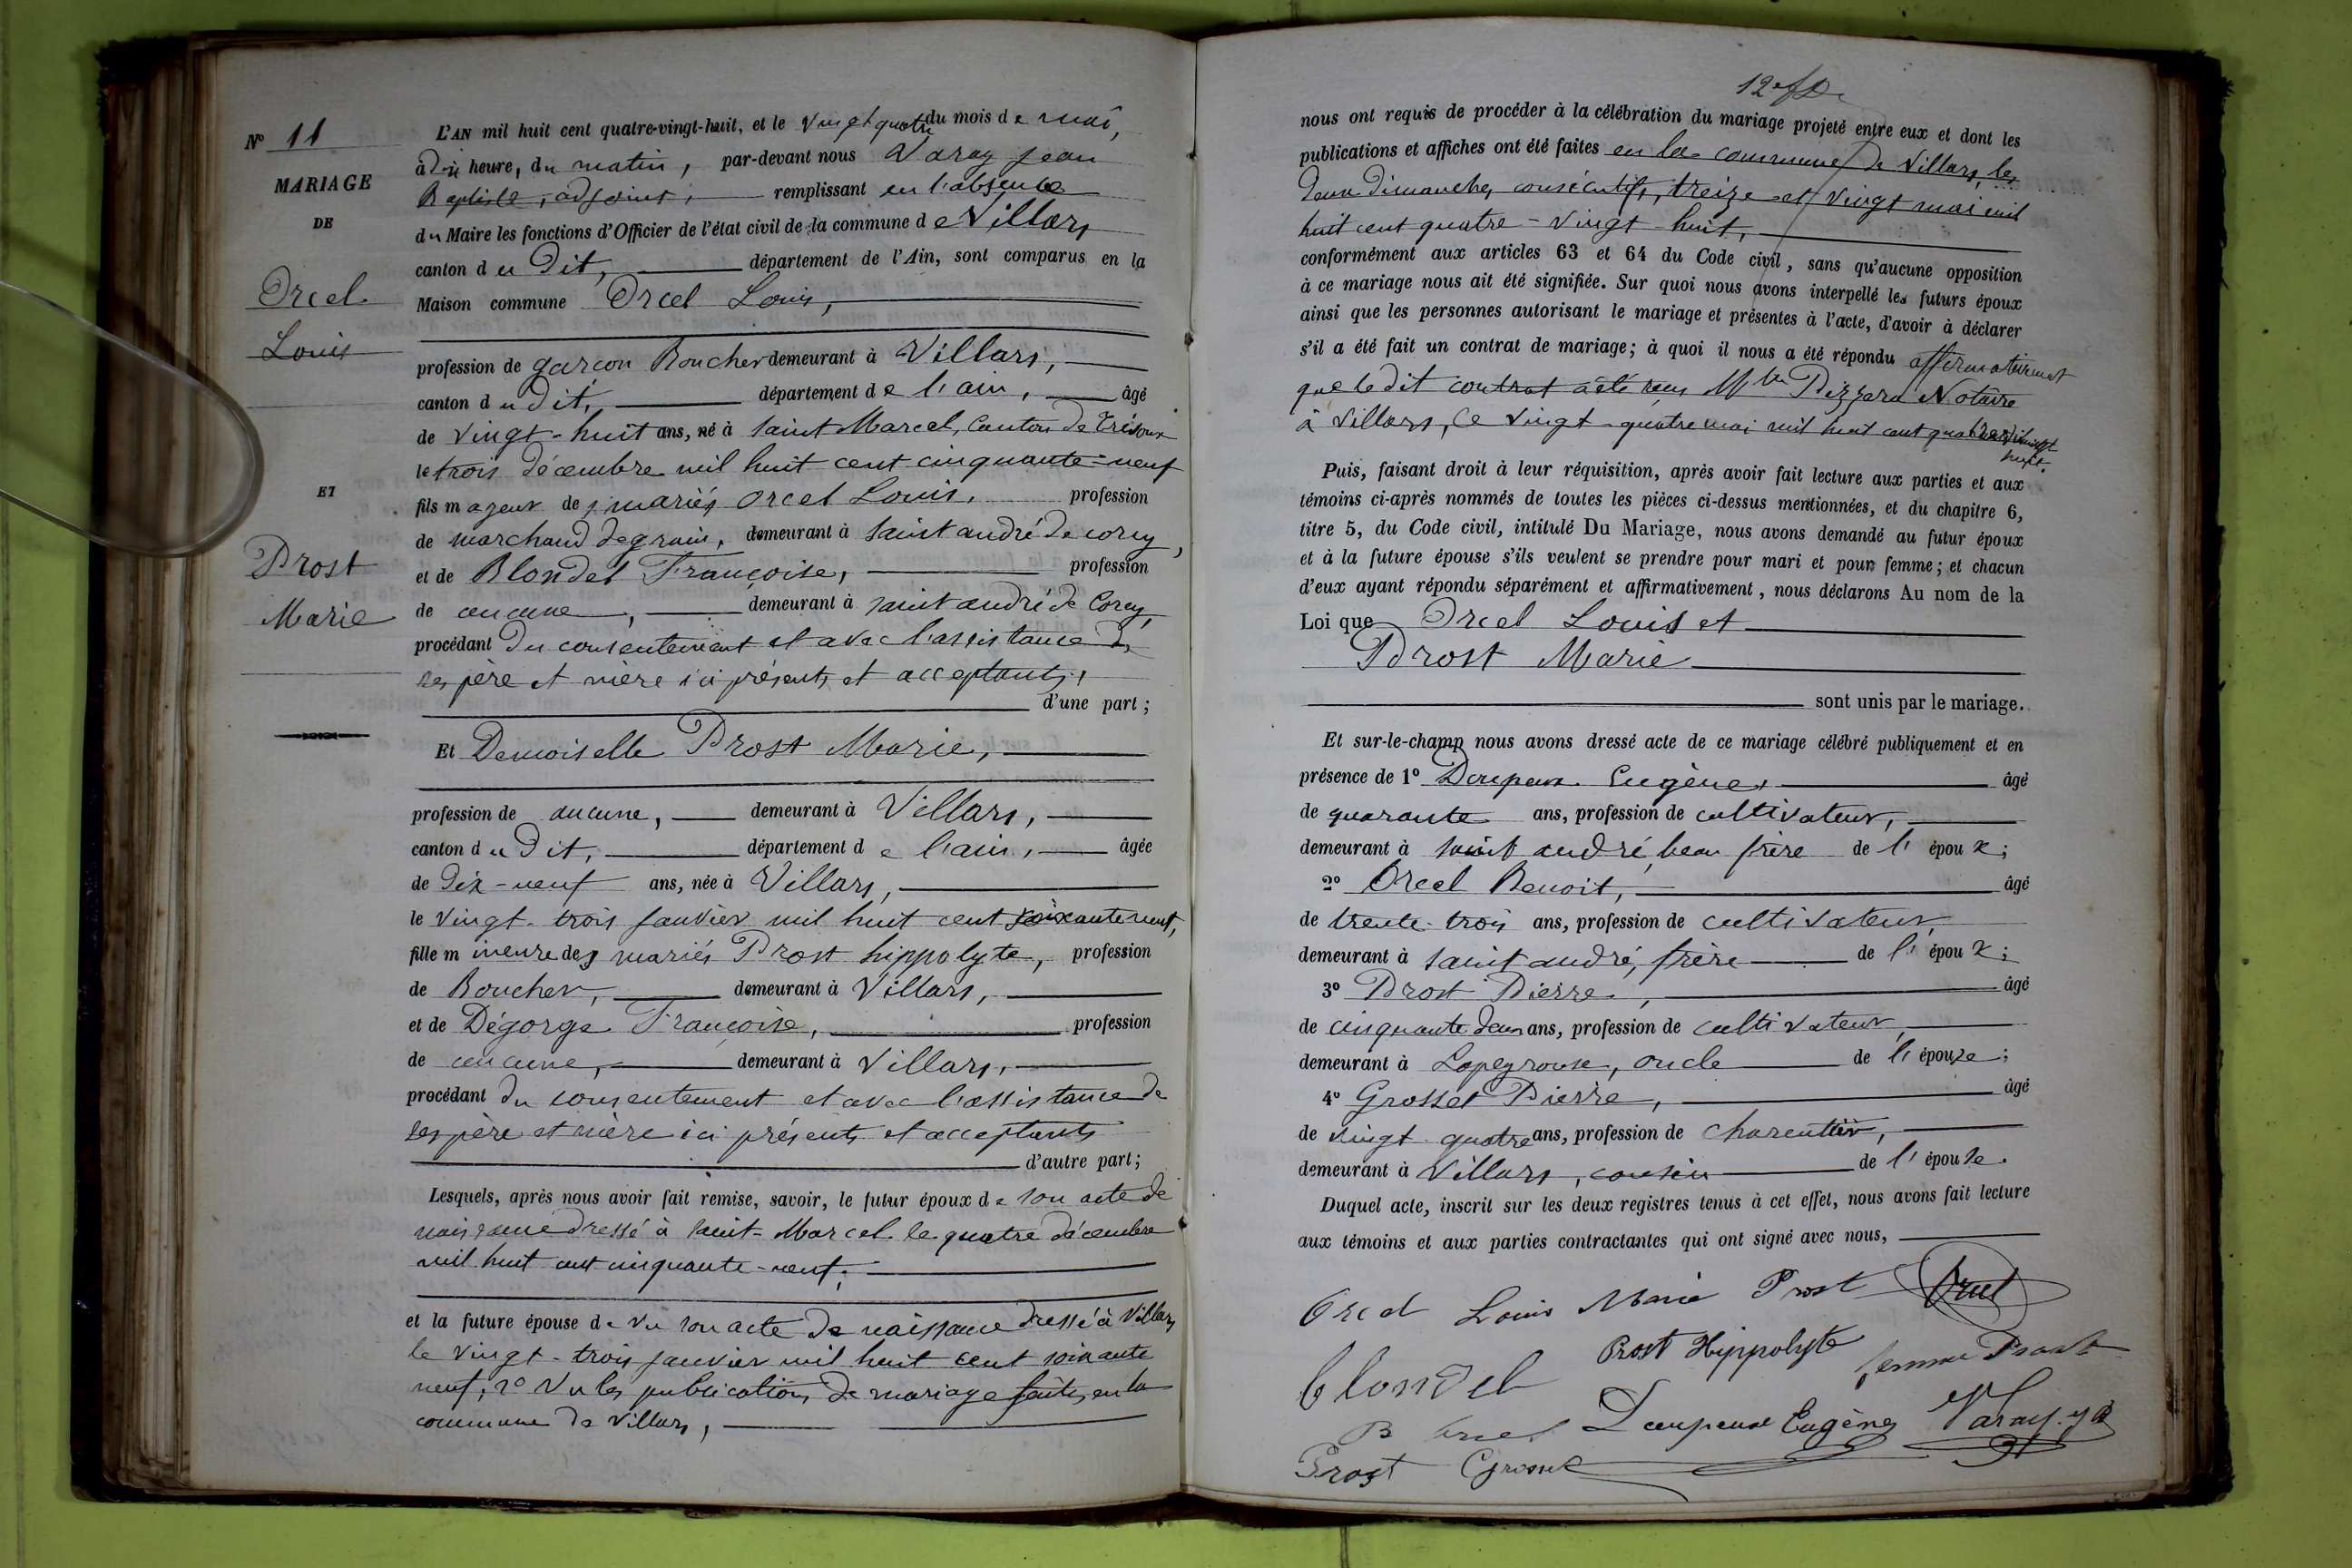 N° 11
MARIAGE
DE
Orcel
Louis
ET
Prost
Marie
L'AN mil huit cent quatre-vingt-huit, et le vingt quatre du mois de mai,
à dix heure, du matin, par-devant nous Varay Jean
Baptiste, adjoint, remplissant en l'absence
du Maire les fonctions d'Officier de l'état civil de la commune de Villars
canton du dit, département de l'Ain, sont comparus en la
Maison commune Orcel Louis,
profession de garçon Boucher demeurant à Villars,
canton du dit, département de l'ain, âgé
de vingt-huit ans, né à saint Marcel, Canton de Trévoux
le trois décembre mil huit cent cinquante-neuf
fils majeur des mariés Orcel Louis, profession
de marchand de grain, demeurant à saint andré de corcy,
et de Blondel Françoise, profession
de aucune, demeurant à saint andré de Corcy,
procédant du consentement et avec l'assistance de
ses père et mère ici présents et acceptants,
d'une part;
Et Demoiselle Prost Marie,
profession de aucune, demeurant à Villars,
canton du dit, département de l'ain, âgée
de dix-neuf ans, née à Villars,
le vingt-trois janvier mil huit cent soixante neuf,
fille mineure des mariés Prost hippolyte, profession
de Boucher, demeurant à Villars,
et de Dégorge Françoise, profession
de aucune, demeurant à Villars,
procédant du consentement et avec l'assistance de
ses père et mère ici présents et acceptants
d'autre part;
Lesquels, après nous avoir fait remise, savoir, le futur époux de son acte de
naissance dressé à saint-Marcel le quatre décembre
mil huit cent cinquante-neuf;
et la future épouse de Vu son acte de naissance dressé à Villars
le vingt-trois janvier mil huit cent soixante
neuf; 2° Vu les publications de mariage faites en la
commune de Villars,
nous ont requis de procéder à la célébration du mariage projeté entre eux et dont les
publications et affiches ont été faites en la commune de Villars, les
deux dimanches consécutifs, treize et vingt mai mil
huit cent quatre-vingt-huit,
conformément aux articles 63 et 64 du Code civil, sans qu'aucune opposition
à ce mariage nous ait été signifiée. Sur quoi nous avons interpellé les futurs époux
ainsi que les personnes autorisant le mariage et présentes à l'acte, d'avoir à déclarer
s'il a été fait un contrat de mariage; à quoi il nous a été répondu affirmativement
que le dit contrat a été reçu Notaire
à Villars, ce vingt-quatre mai mil huit cent quatre vingt
huit.
Puis, faisant droit à leur réquisition, après avoir fait lecture aux parties et aux
témoins ci-après nommés de toutes les pièces ci-dessus mentionnées, et du chapitre 6,
titre 5, du Code civil, intitulé Du Mariage, nous avons demandé au futur époux
et à la future épouse s'ils veulent se prendre pour mari et pour femme; et chacun
d'eux ayant répondu séparément et affirmativement, nous déclarons Au nom de la
Loi que Orcel Louis et
Prost Marie
sont unis par le mariage.
Et sur-le-champ nous avons dressé acte de ce mariage célébré publiquement et en
présence de 1° Eugène, âgé
de quarante ans, profession de cultivateur,
demeurant à saint andré, beau frère de l'époux;
2° Orcel Benoit, âgé
de trente-trois ans, profession de cultivateur,
demeurant à saint andré, frère de l'époux;
3° Prost Pierre, âgé
de cinquante deux ans, profession de cultivateur,
demeurant à Lapeyrouse, oncle de l'épouse;
4° Grosset Pierre, âgé
de vingt-quatre ans, profession de
demeurant à Villars, cousin de l'épouse.
Duquel acte, inscrit sur les deux registres tenus à cet effet, nous avons fait lecture
aux témoins et aux parties contractantes qui ont signé avec nous,
Orcel Louis Marie Prost Orcel
blondel Prost Hippolyte femme Prost
B Orcel Eugène Varay
Prost Grosset